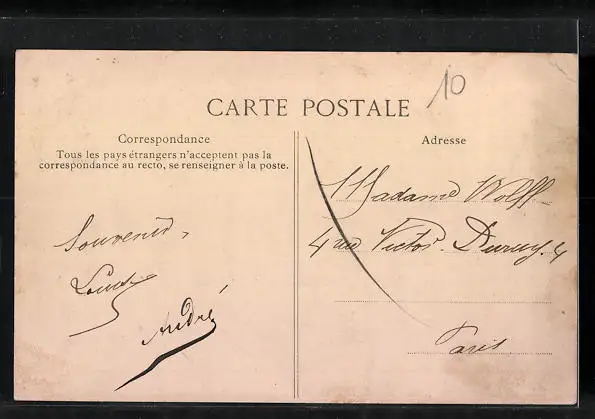 10
CARTE POSTALE
Correspondance
Tous les pays étrangers n'acceptent pas la
correspondance au recto, se renseigner à la poste.
Souvenir,
Louise
André
Adresse
Madame Wolff
4 rue Victor Duruy. 4
Paris.